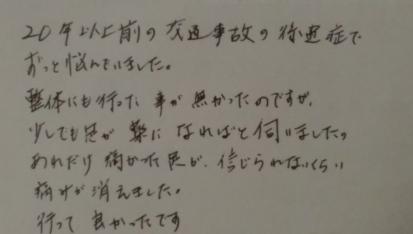 20年以上前の交通事故の後遺症で
ずっと悩んでいました。
整体にも行った事が無かったのですが、
少しでも足が楽になればと伺いました。
あれだけ痛かった足が、信じられないくらい
痛みが消えました。
行って良かったです